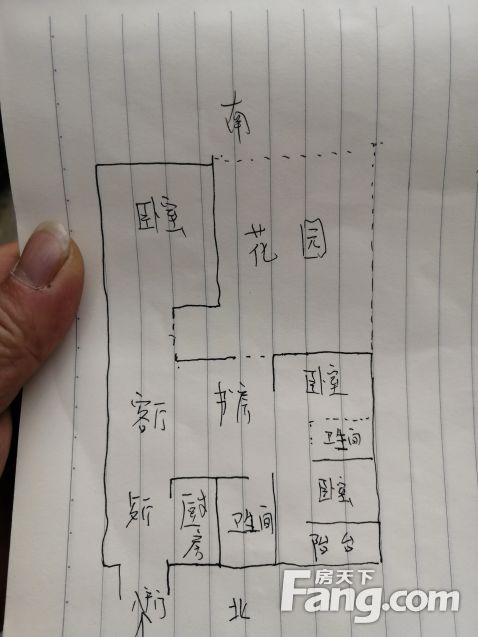 南
卧室
花园
卧室
客厅
书房
卫生间
卧室
厨房
卫生间
阳台
北
房天下
Fang.com